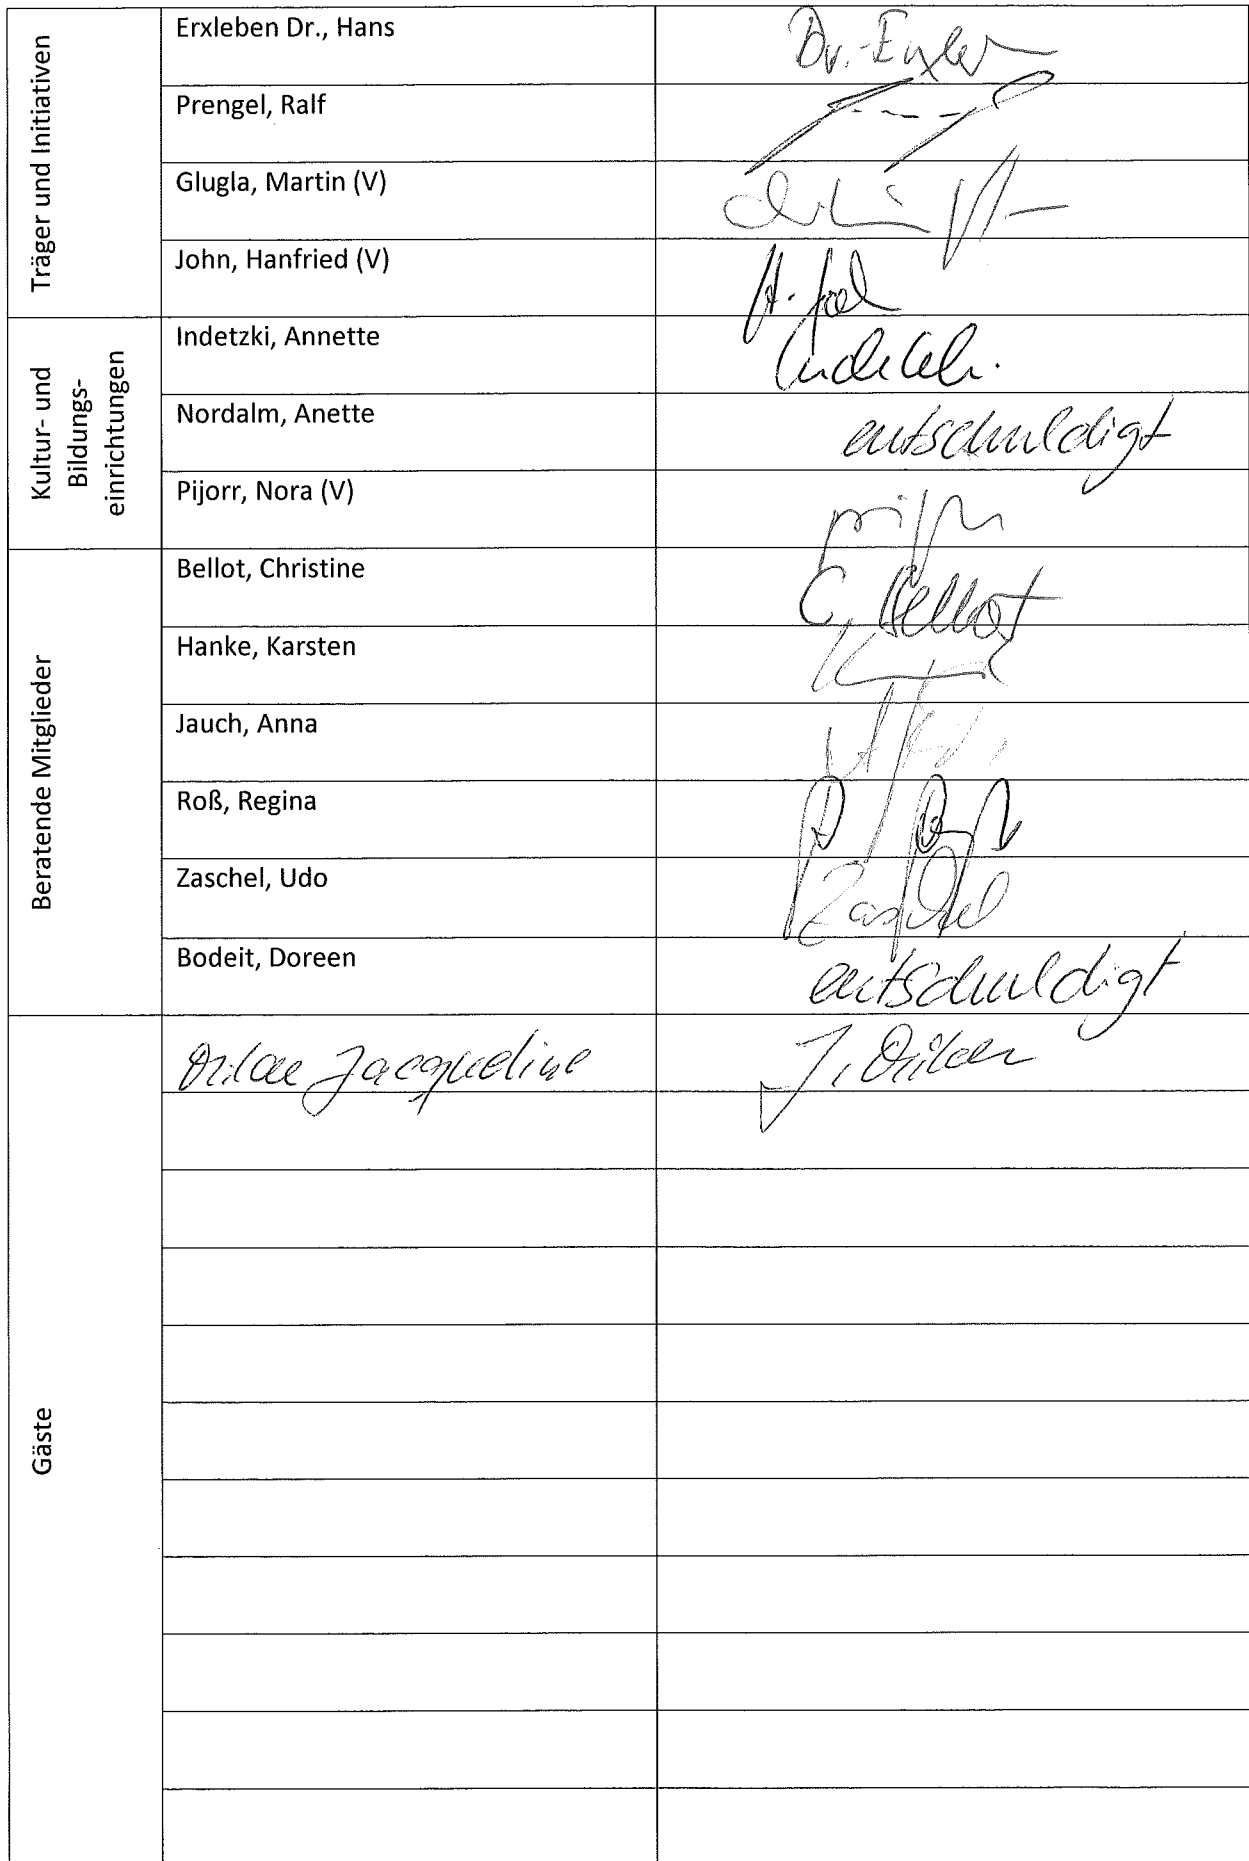 Träger und Initiativen
Erxleben Dr., Hans
Prengel, Ralf
Glugla, Martin (V)
John, Hanfried (V)
Kultur- und
Bildungs-
einrichtungen
Indetzki, Annette
Nordalm, Anette entschuldigt
Pijorr, Nora (V)
Beratende Mitglieder
Bellot, Christine C. Bellot
Hanke, Karsten
Jauch, Anna
Roß, Regina
Zaschel, Udo Zaschel
Bodeit, Doreen entschuldigt
Gäste
Jacqueline J.